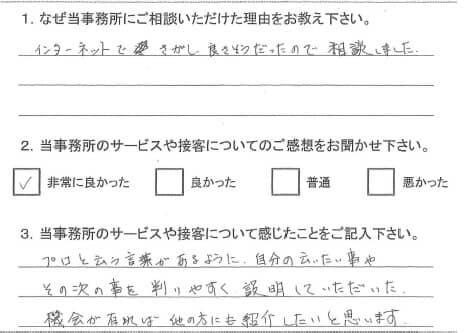 1. なぜ当事務所にご相談いただけた理由をお教え下さい。
インターネットで さがし 良さそうだったので 相談しました.
2. 当事務所のサービスや接客についてのご感想をお聞かせ下さい。
☑ 非常に良かった □ 良かった □ 普通 □ 悪かった
3. 当事務所のサービスや接客について感じたことをご記入下さい。
プロと云う言葉があるように、自分の云いたい事や
その次の事を 判りやすく 説明していただいた.
機会が有れば 他の方にも紹介したいと思います